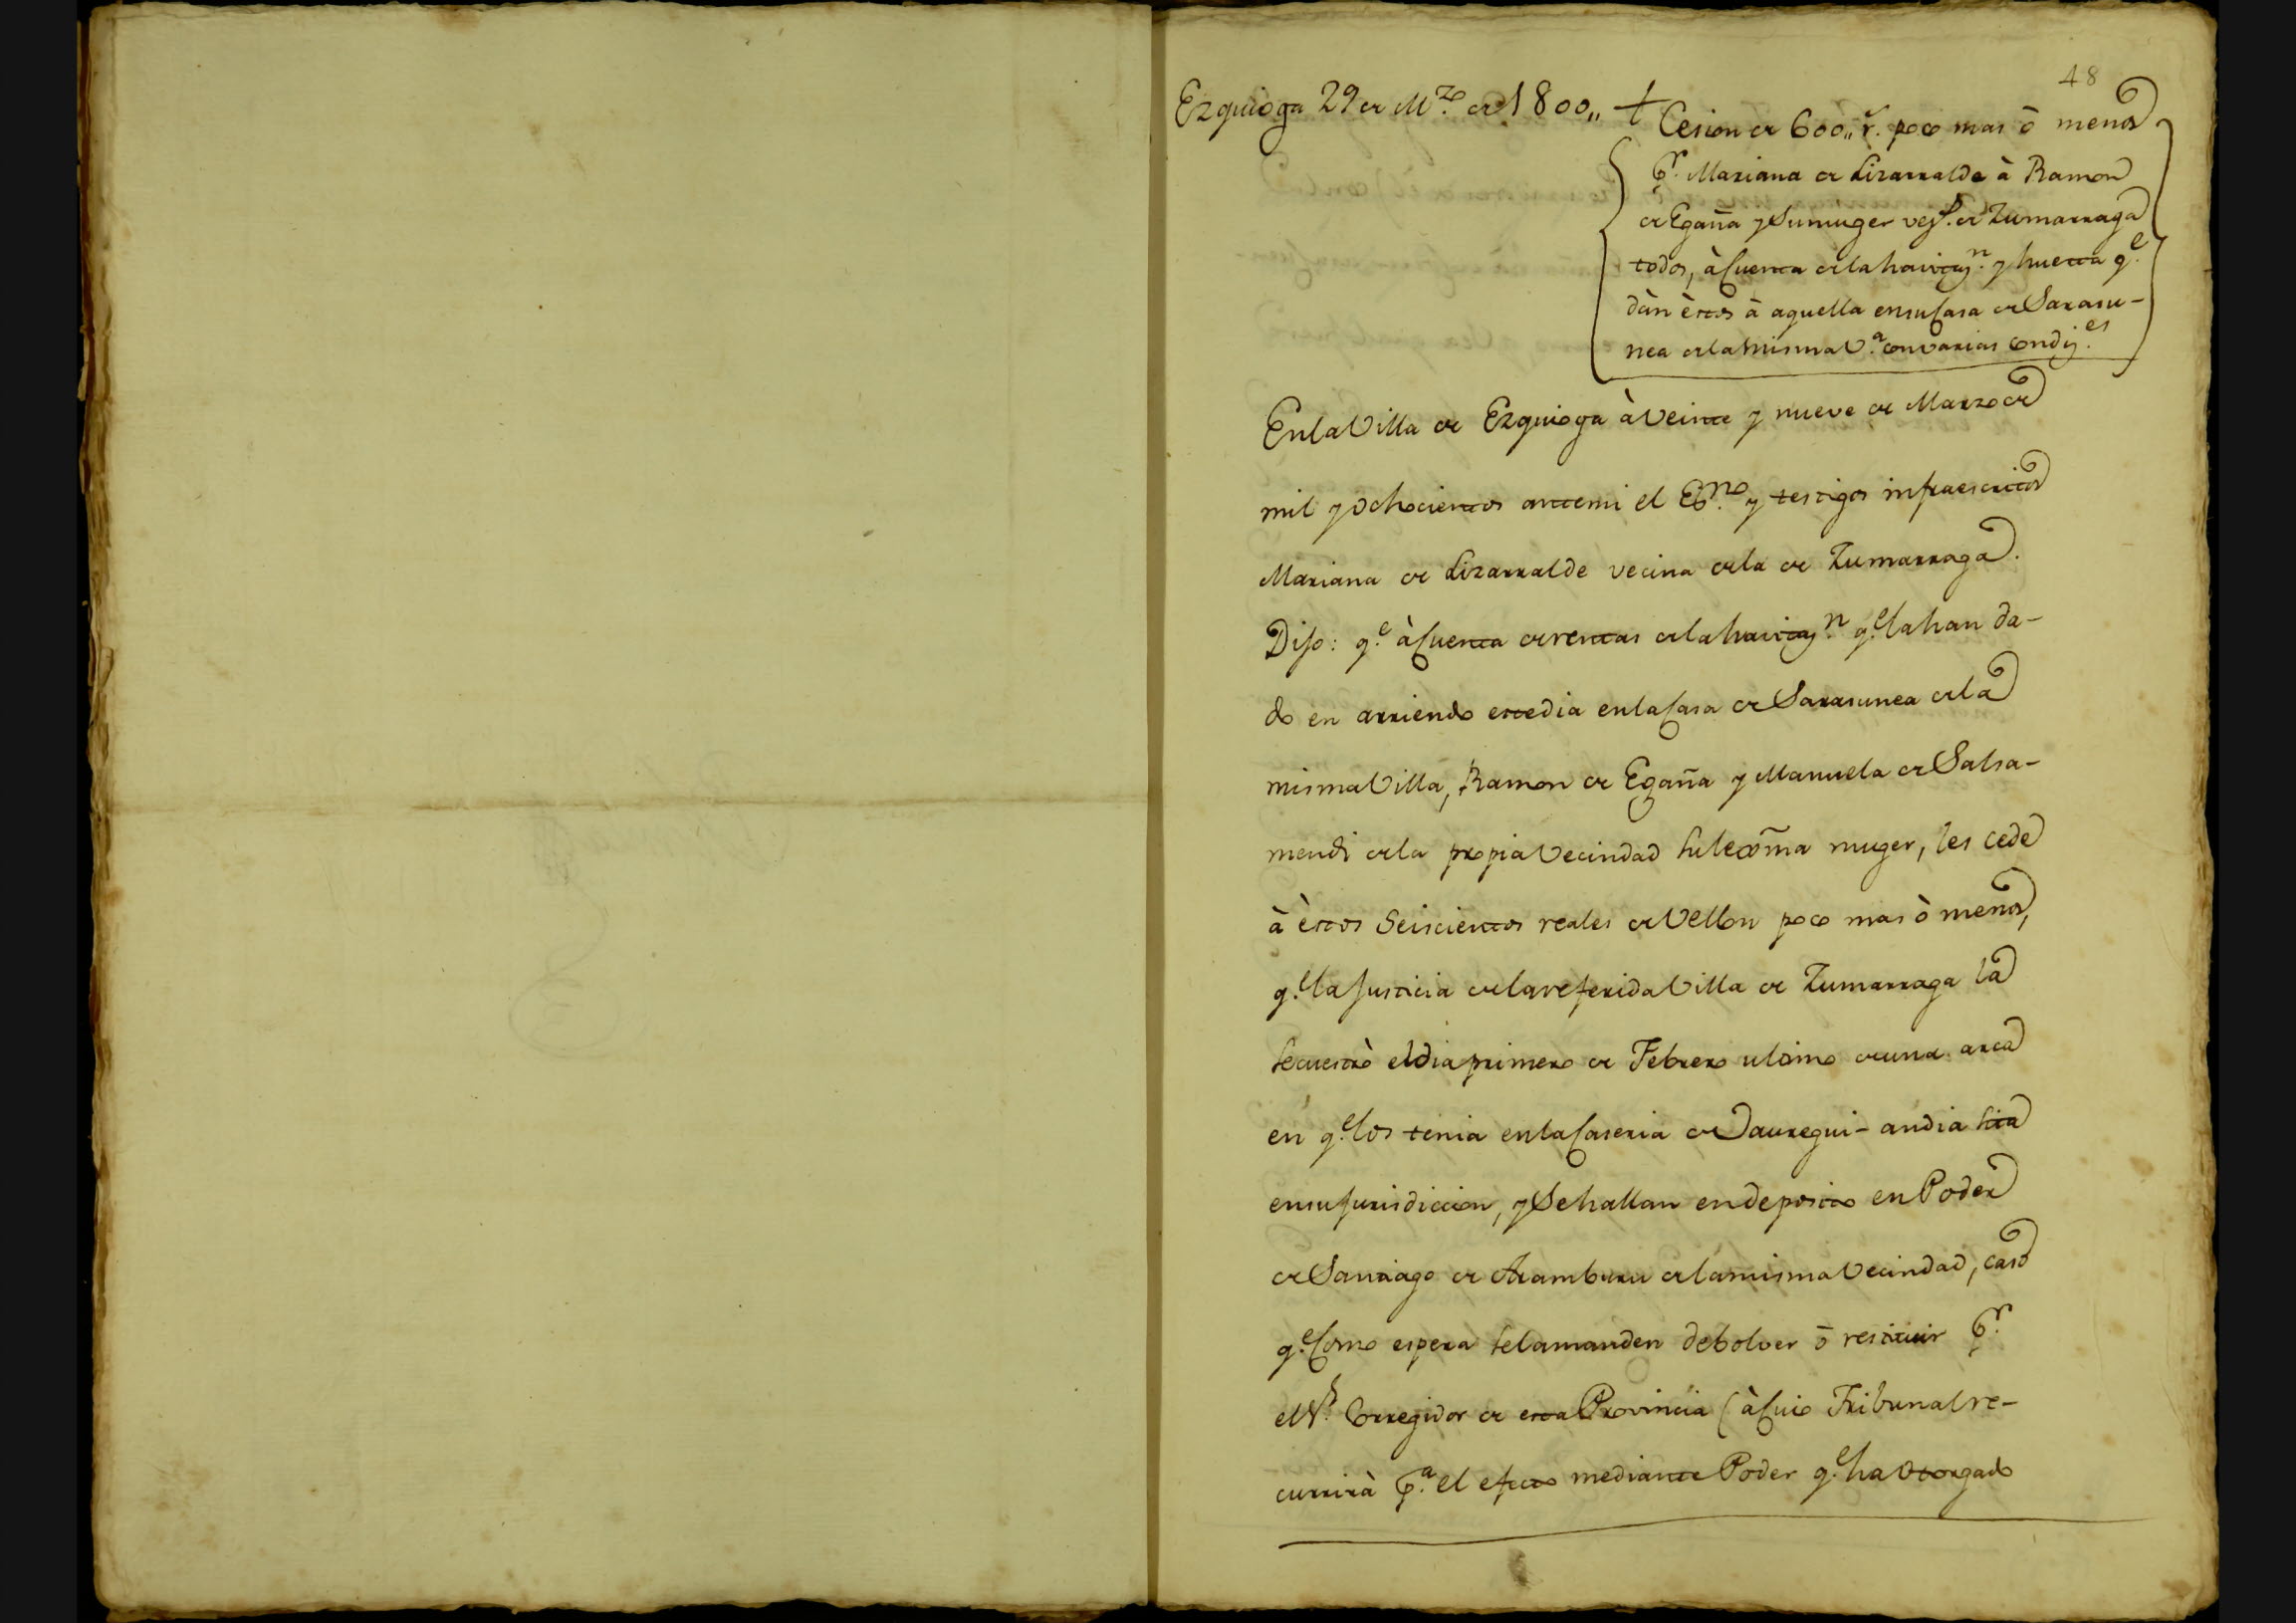 48
Ezquioga 29 de M.zo de 1800,, +
Cesion de 600,, r.s poco mas ò menos
p.r Mariana de Lizarralde à Ramon
de Egaña y Su muger vez.s de Zumarraga
todos, à Cuenta de la havitaz.n y huerta q.e
dàn èstos à aquella en su Casa de Sarasu-
nea de la misma V.a con varias condiz.es
En la Villa de Ezquioga à Veinte y nueve de Marzo de
mil y Ochocientos ante mi el Es.no y testigos infraescritos
Mariana de Lizarralde vecina de la de Zumarraga.
Dijo: q.e à Cuenta de rentas de la havitaz.n q.e la han da-
do en arriendo este dia en la Casa de Sarasunea de la
misma Villa, Ramon de Egaña y Manuela de Salsa-
mendi de la propia Vecindad Su lexma muger, les cede
à èstos Seiscientos reales de Vellon poco mas ò menos,
q.e la Justicia de la referida Villa de Zumarraga la
Secuestrò el dia primero de Febrero ultimo de una arca
en q.e los tenia en la Caseria de Jauregui-andia Sita
en su Jurisdiccion, y Se hallan en deposito en Poder
de Santiago de Aramburu de la misma Vecindad, caso
q.e Como espera Se la manden debolver ò restituir p.r
el S.r Corregidor de esta Provincia (à Cuio Tribunal re-
currirà p.a el efecto mediante Poder q.e ha Otorgado